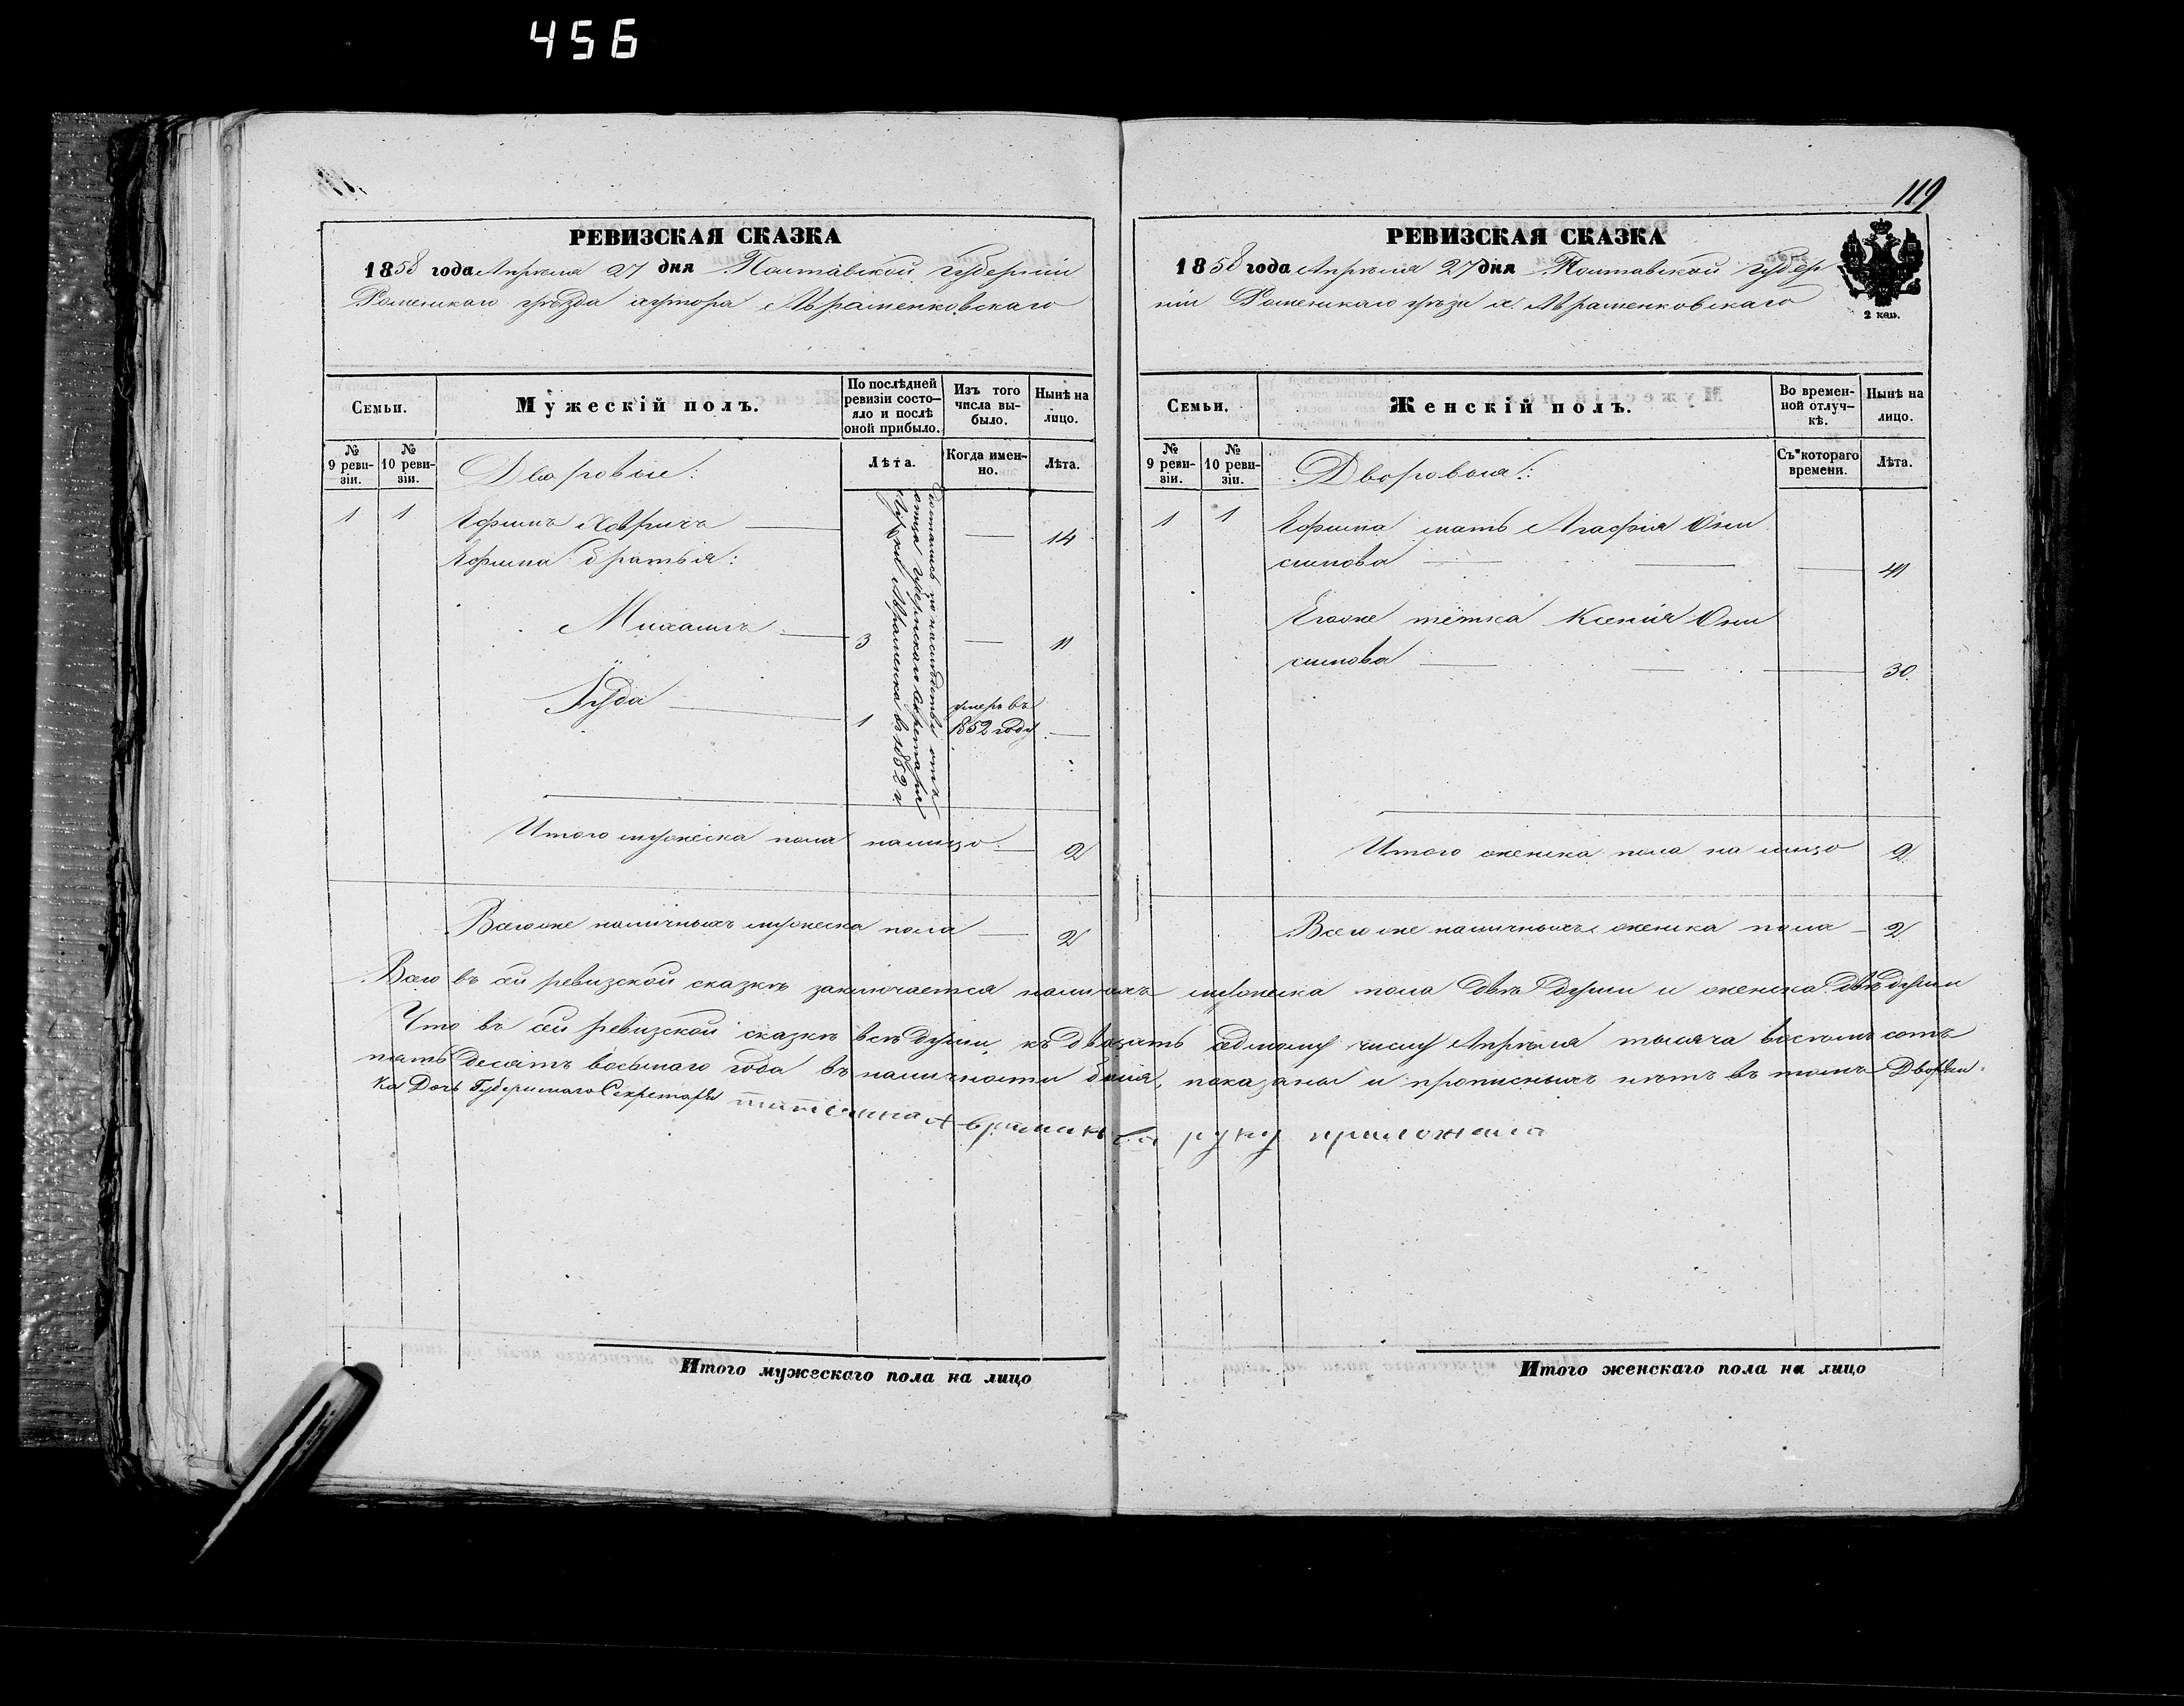 456
119
РЕВИЗСКАЯ СКАЗКА
1858 года Апреля 27 дня Полтавской губерніи
Роменскаго уѣзда хутора Авраменковскаго
Семьи.
Мужескій полъ.
По послѣдней ревизіи состо-яло и послѣ оной прибыло.
Изъ того числа вы-было.
Нынѣ на лицо.
№ 9 реви-зіи.
№ 10 реви-зіи.
Дворовые:
Лѣта.
Когда имен-но.
Лѣта.
1 1 Ефимъ — 14
Ефима братья:
Михаилъ 3 — 11
Іуда 1 умеръ въ 1852 году —
достались по наслѣдству отъ
отца Губернскаго Секретаря
Авраменка в 1852 г
Итого мужеска пола налицо 2
Всего же наличныхъ мужеска пола 2
РЕВИЗСКАЯ СКАЗКА
1858 года Апреля 27 дня Полтавской губер
ніи Роменскаго х. Авраменковскаго
2 коп.
Семьи.
Женскій полъ.
Во времен-ной отлуч-кѣ.
Нынѣ на лицо.
№ 9 реви-зіи.
№ 10 реви-зіи.
Дворовыя:
Съ котораго времени.
Лѣта.
1 1 Ефима мать Агафія Они
симова — 41
Егоже тётка Ксенія Они
симова — 30
Итого женска пола на лицо 2
Всего же наличныхъ женска пола 2
Всего въ сей ревизской сказкѣ заключается мужеска пола двѣ души и женска двѣ души
Что въ сей ревизской сказкѣ всѣ души, къ двадцать седмому числу Апрѣля тысяча восемь сотъ
пять десятъ восьмаго года въ наличности былія, показаны и прописныхъ нѣтъ въ томъ Дворян
ка Дочь Губернскаго Секретаря руку приложила
Итого мужескаго пола на лицо
Итого женскаго пола на лицо